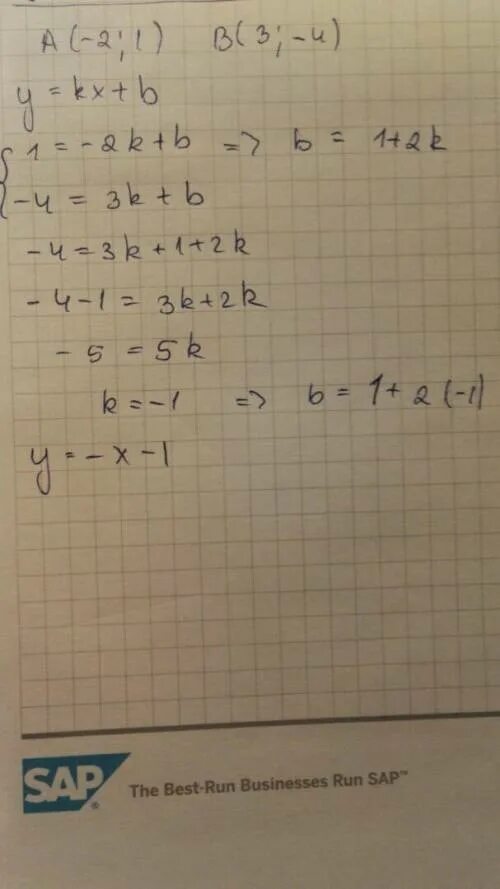 A(-2;1) B(3;-4)
y = kx + b
{ 1 = -2k + b => b = 1+2k
-4 = 3k + b
-4 = 3k + 1 + 2k
-4-1 = 3k+2k
-5 = 5k
k = -1 => b = 1 + 2(-1)
y = -x -1
SAP®
The Best-Run Businesses Run SAP™